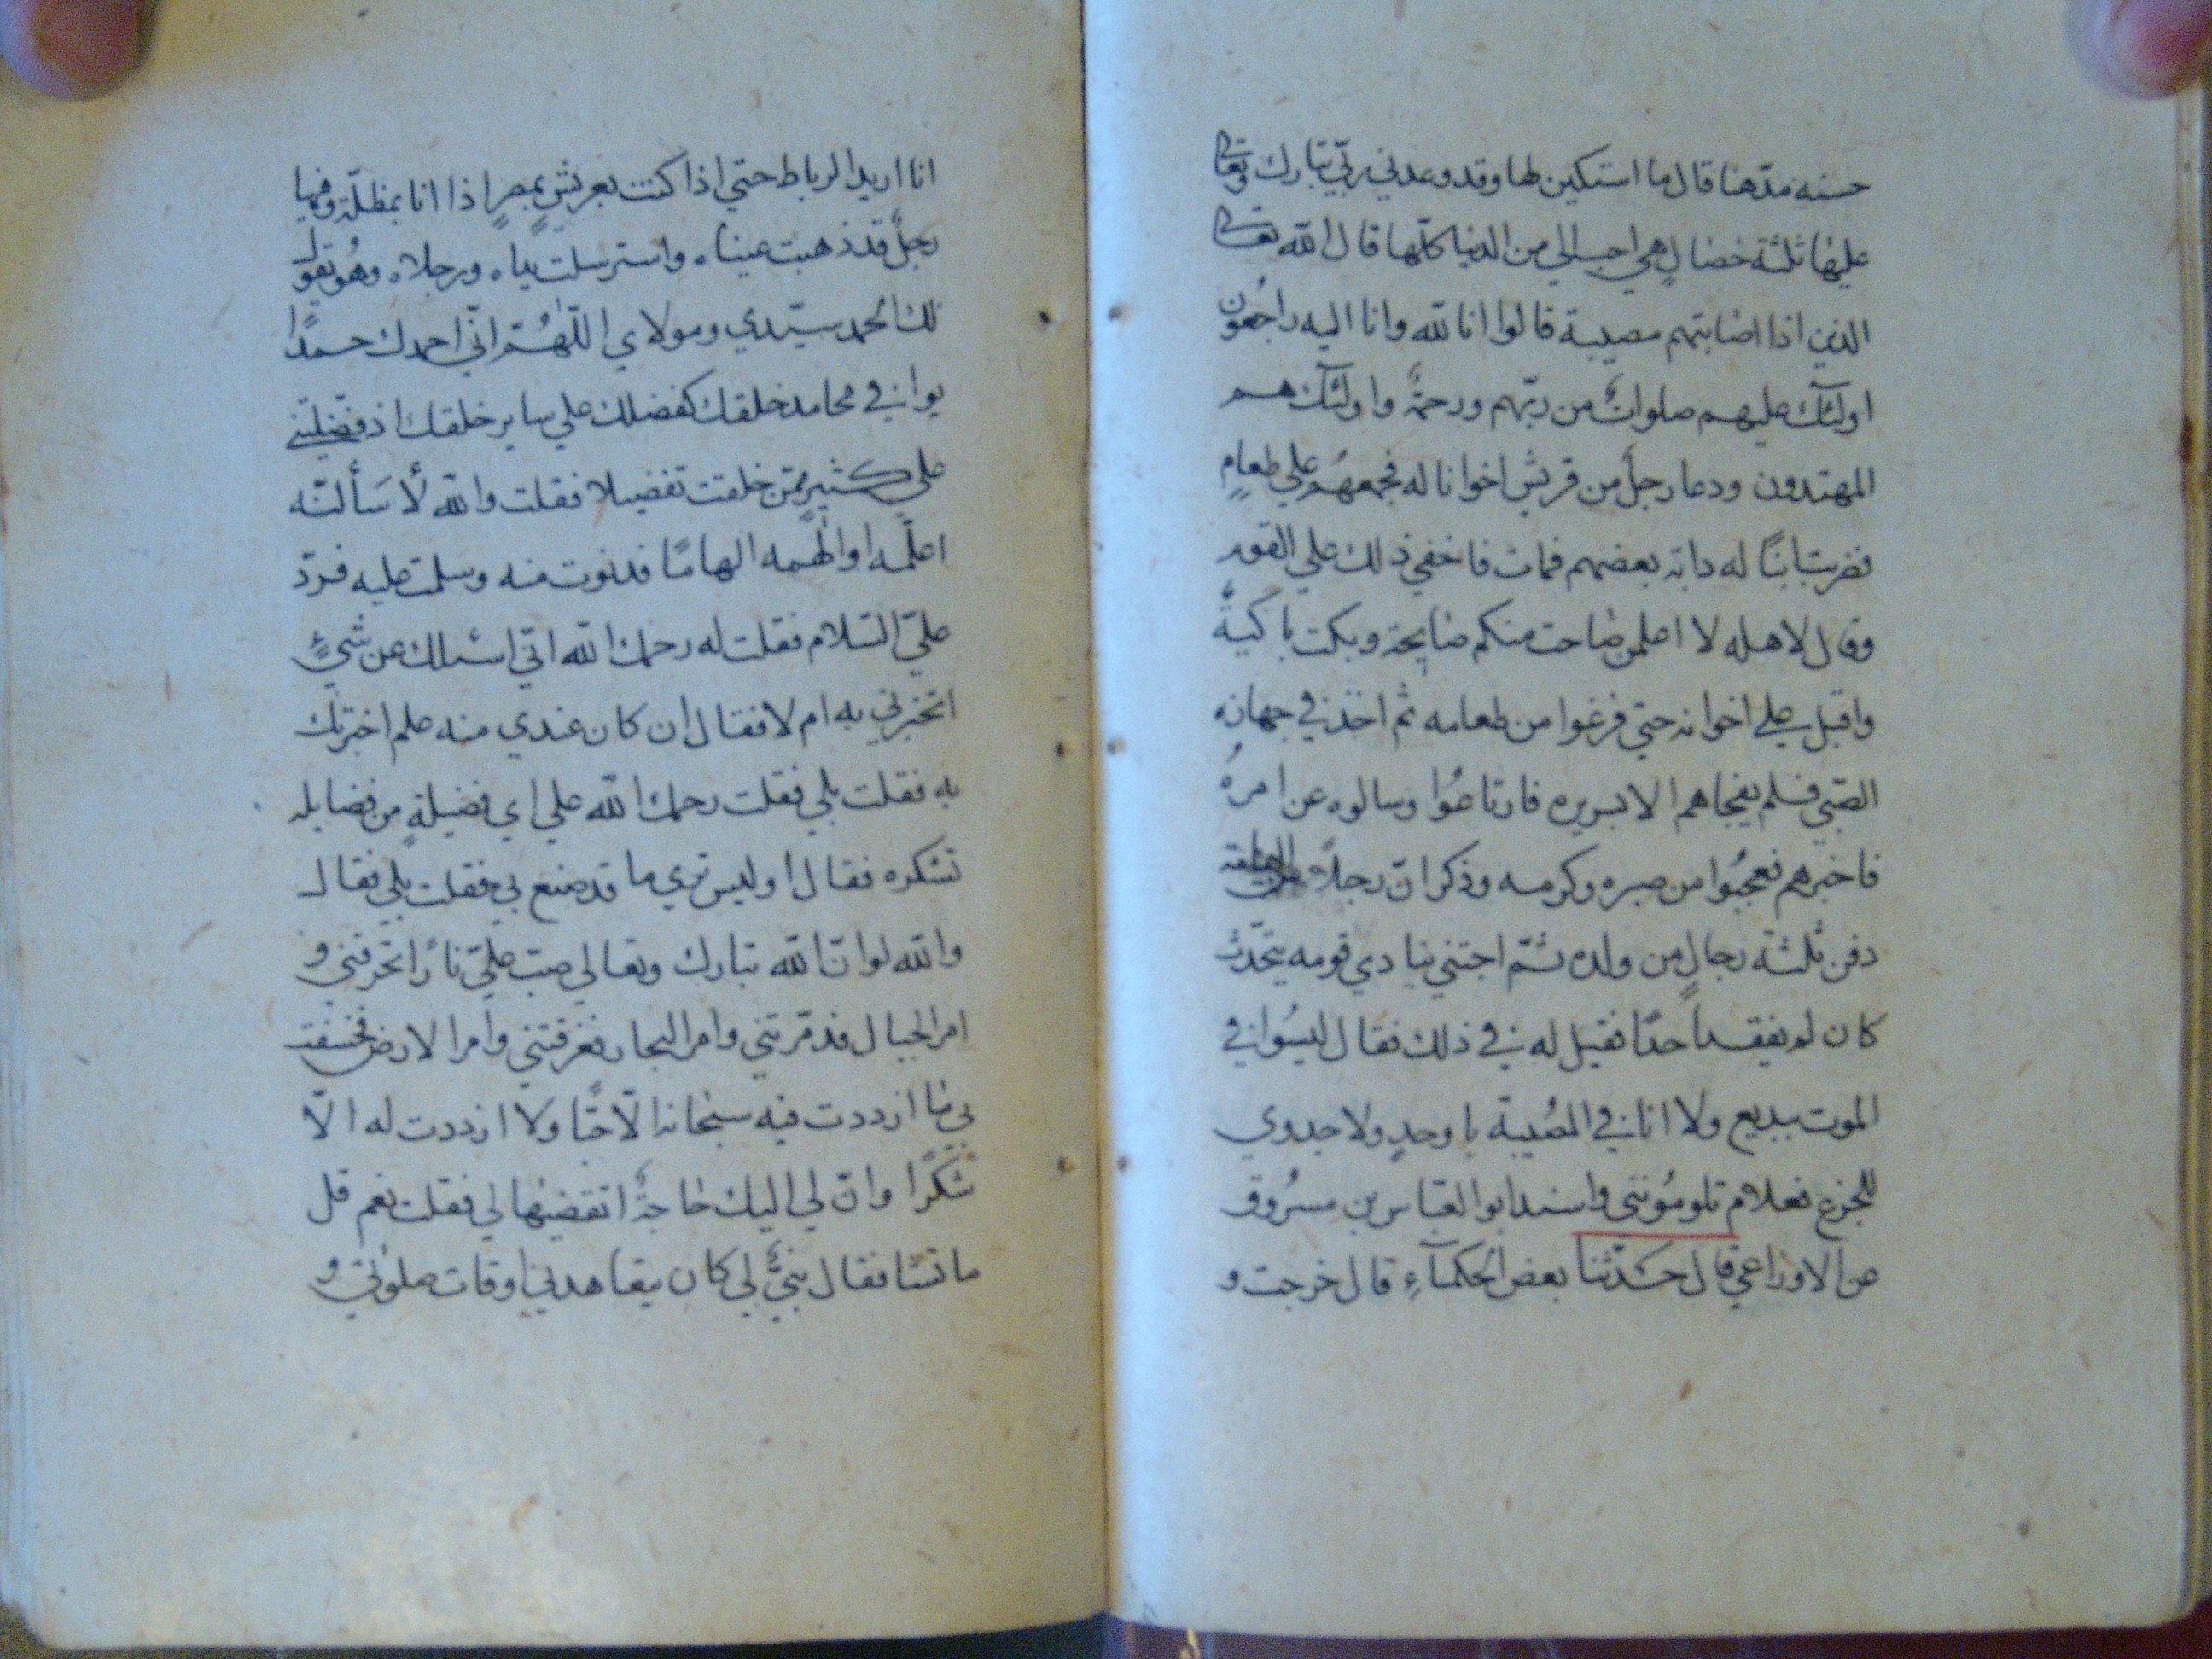 حسنه مدّهنا قال ما استكين لها وقد وعدني ربّي تبارك وتعالى
عليها ثلثة خصالٍ هي احب الي من الدنيا كلّها قال الله تعالى
الذين اذا اصابتهم مصيبة قالوا انا لله وانا اليه راجعُون
اولئك عليهم صلواتٌ من ربّهم ورحمةٌ واولئك هم
المهتدون ودعا رجلٌ من قريش اخوانا له فجمعهُم علي طعامٍ
فضربت ابنًا له دابة بعضهم فمات فاخفي ذلك علي القوم
وقال لاهله لا اعلمن صاحت منكم صايحة وبكت باكيةٌ
واقبل علي اخوانه حتي فرغوا من طعامه ثم اخذ في جهازه
الصّبي فلم يفجاهم الا بسريره فارتاعُوا وسالوه عن امرهُ
فاخبرهم فعجبُوا من صبره وكرمه وذكر انّ رجلاً من اليمامة
دفن ثلثة رجالٍ من ولده ثمّ اجتبي بنادي قومه يتحّدث
كان لم يفقد احدًا فقيل له في ذلك فقال ليسُوا في
الموت ببديع ولا انا في المصُيبة باوحدٍ ولا جدوي
للجزع فعلام تلومُونني واسند ابو العبّاس بن مسرُوق
عن الاوزاعي قال حَدّثنا بعض الحُكمآءِ قال خرجت و
انا اريد الرباط حتي اذا كنت بعريشٍ بمصرٍ اذا انا بمظلّة وفيها
رجلٌ قد ذهبت عيناه واسترسلت يداه ورجلاه وهُو يقول
لك الحمد سيّدي ومولاي اللّهُمّ انّي احمدك حمدًا
يوافي محامد خلقك كفضلك علي ساير خلقك اذ فضّلتني
علي كثيرٍ ممّن خلقت تفضيلا فقلت والله لأسَألنّه
اعلّمه او الهمه الهامًا فدنوت منه وسلمت عليه فردّ
عليّ السّلام فقلت له رحمك الله انّي اسئلك عن شيءٍ
اتخبرني به ام لا فقال ان كان عندي منه علم اخبرتك
به فقلت بلي فقلت رحمك الله علي اي فضيلةٍ من فضايله
تشكره فقال اوليس تري ما قد صنع بي فقلت بلي فقال
والله لو انّ الله تبارك وتعالي صبّ عليّ نارًا تحرقني و
امر الجبال فدمّرتني وامر البحار فغرقتني وامر الارض فخسفت
بي ما ازددت فيه سبحانه الّا حُبًّا ولا ازددت له الّا
شُكرًا وانّ لي اليك حاجةً اتقضيها لي فقلت نعم قل
ما تشا فقال بنيٌّ لي كان يتعاهدني اوقات صلوتي و